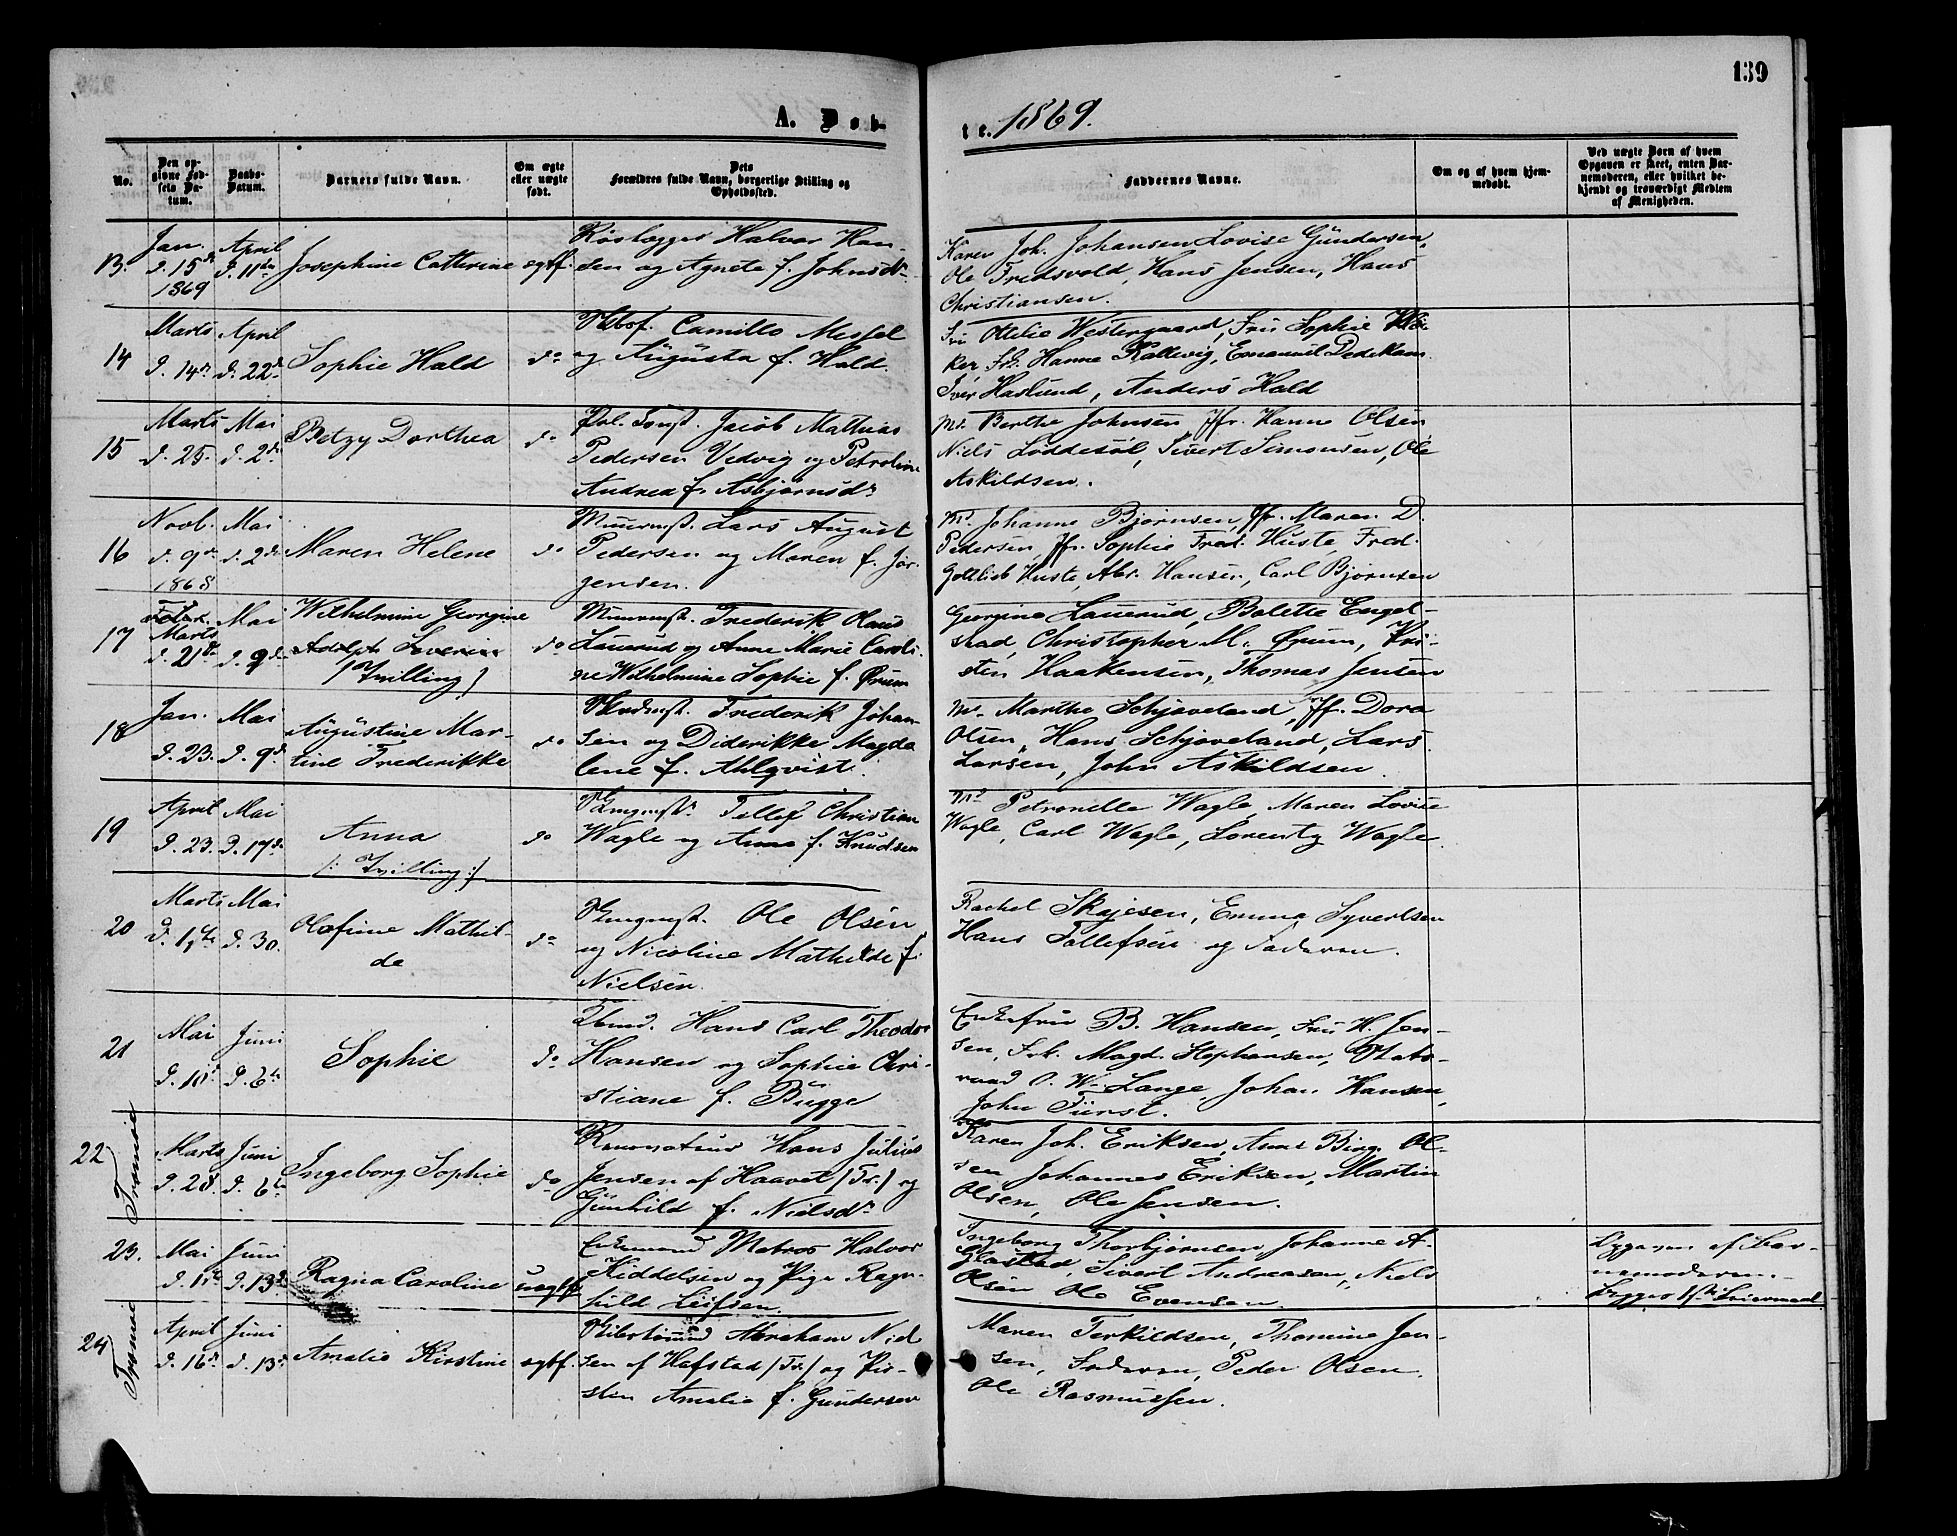 139
A. Døb-
te. 1869.
No.
Den op-
givne Fød-
sels Da-
tum.
Daabs-
Datum.
Barnets fulde Navn.
Om ægte
eller uægte
født.
Dets
Forældres fulde Navn, borgerlige Stilling og
Opholdssted.
Faddernes Navne.
Om og af hvem hjem-
medøbt.
Ved uægte Børn af hvem
Opgaven er skeet, enten Bar-
nemoderen, eller hvilket be-
kjendt og troværdigt Medlem
af Menigheden.
13.
Jan.
d. 15de
1869
April
d. 11te
Josephine Catterine
ægtf.
Halvor Han-
sen og Agnete f. Johnsdr
Karen Joh. Johansen Lovise Gundersen,
Ole Fredsvold, Hans Jensen, Hans
Christiansen.
14
Marts
d. 14d
April
d. 22d
Sophie Hald
do
Camillo Missel
og Augusta f. Hald.
Fru Ottilie Westergaard, Fru Sophie
Hanne Kallevig, Emanuel Dedekam
Iver Haslund, Anders Hald
15
Marts
d. 25.
Mai
d. 2d
Betzy Dorthea
do
Jacob Mathias
Pedersen Vedvig og Petroline
Andrea f. Asbjørnsdr
Md. Berthe Johnsen Jfr. Hanne Olsen
Niels Løddesøl, Sivert Simonsen, Ole
Askildsen.
16
Novb.
d. 9d
1868
Mai
d. 2d
Maren Helene
do
Muurmst. Lars August
Pedersen og Maren f. Jør-
gensen.
Md. Johanne Bjørnsen, Jfr. Maren D.
Pedersen, Jfr. Sophie Fred. Huste, Fred.
Gottlieb Huste, Abr. Hansen, Carl Bjørnsen
17
Marts
d. 21d
Mai
d. 9d
Wilhelmine Georgine
Adolph Severin
/Tvilling/
do
Muurmst. Frederik Olaus
Lauerud og Anne Marie Caroli-
ne Wilhelmine Sophie f. Ørum
Georgine Lauerud, Bolette Engel-
stad, Christopher M. Ørum, Kri-
sten Haakensen, Thomas Jensen
18
Jan.
d. 23.
Mai
d. 9d
Augustine Mar-
tine Frederikke
do
Frederik Johan-
sen og Diderikke Magda
lene f. Ahlqvist.
Md. Marthe Schjøveland, Jfr. Dora
Olsen, Hans Schjøveland, Lars
Larsen, John Askildsen.
19
April
d. 23.
Mai
d. 17d
Anna
/: Tvilling :/
do
Tellef Christian
Wagle og Anne f. Knudsen
Md Petronelle Wagle, Maren Lovise
Wagle, Carl Wagle, Lorentz Wagle.
20
Marts
Mai
d. 30.
Olafine Mathil-
de
do
Ole Olsen
og Nicoline Mathilde f.
Nielsen.
Rachel Skajesen, Emma Syvertsen
Hans Tellefsen og Faderen.
21
Mai
d. 10d
Juni
d. 6te
Sophie
do
Hans Carl Theodor
Hansen og Sophie Chri-
stiane f. Bugge
Enkefru B. Hansen, Fru H. Jen-
sen, Frk. Magd. Stephansen, Stats-
raad O. W. Lange, Johan Hansen,
John Fürst.
22
Tromøe
Marts
d. 28.
Juni
d. 6te
Ingeborg Sophie
do
Hans Julius
Jensen af Haavet /Tr./ og
Gunhild f. Nielsdr
Karen Joh. Eriksen, Anne Birg. Ol-
sen Johannes Eriksen, Martin
Olsen, Ole Jensen.
23.
Mai
Juni
d. 13d
Ragna Caroline
uægtf
Enkemand Matros Halvor
Kiddelsen og Pige Ragn-
hild Leifsen.
Ingeborg Thorbjørnsen Johanne A.
Glastad, Sivert Andreasen, Niels
Olsen Ole Evensen.
Opgaven af Bar-
nemoderen.
Begges 1ste Leiermaal
24
Tromøe
April
d. 16d
Juni
d. 13d
Amalie Kirstine
ægtf.
Abraham Niel
sen af Hafstad /Tr./ og Kir-
sten Amalie f. Gundersen
Maren Terkildsen, Thomine Jen-
sen, Faderen, Peder Olsen,
Ole Rasmussen.